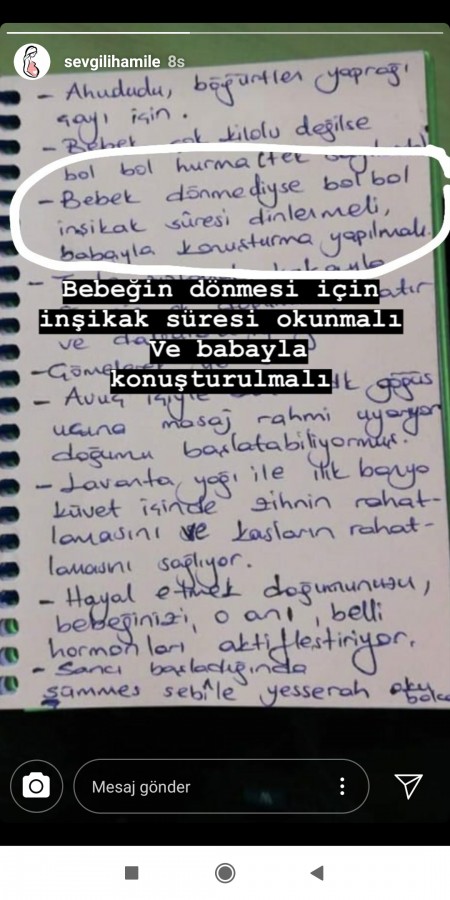 sevgilihamile 8s
- Ahududu, böğürtlen yaprağı
çayı için.
- Bebek çok kilolu değilse
bol bol hurma
- Bebek dönmediyse bol bol
inşikak sûresi dinlenmeli,
babayla konuşturma yapılmalı.
Bebeğin dönmesi için
inşikak süresi okunmalı
Ve babayla
konuşturulmalı
ve
- Avuç içiyle göğüs
ucuna masaj rahmi uyarıyor
doğumu başlatabiliyormuş.
- Lavanta yağı ile ılık banyo
küvet içinde zihnin rahat-
lamasını ve kasların rahat-
lamasını sağlıyor.
- Hayal etmek doğumunuzu,
bebeğinizi, o anı, belli
hormonları aktifleştiriyor.
- Sancı başladığında
sümmes sebîle yesserah
Mesaj gönder